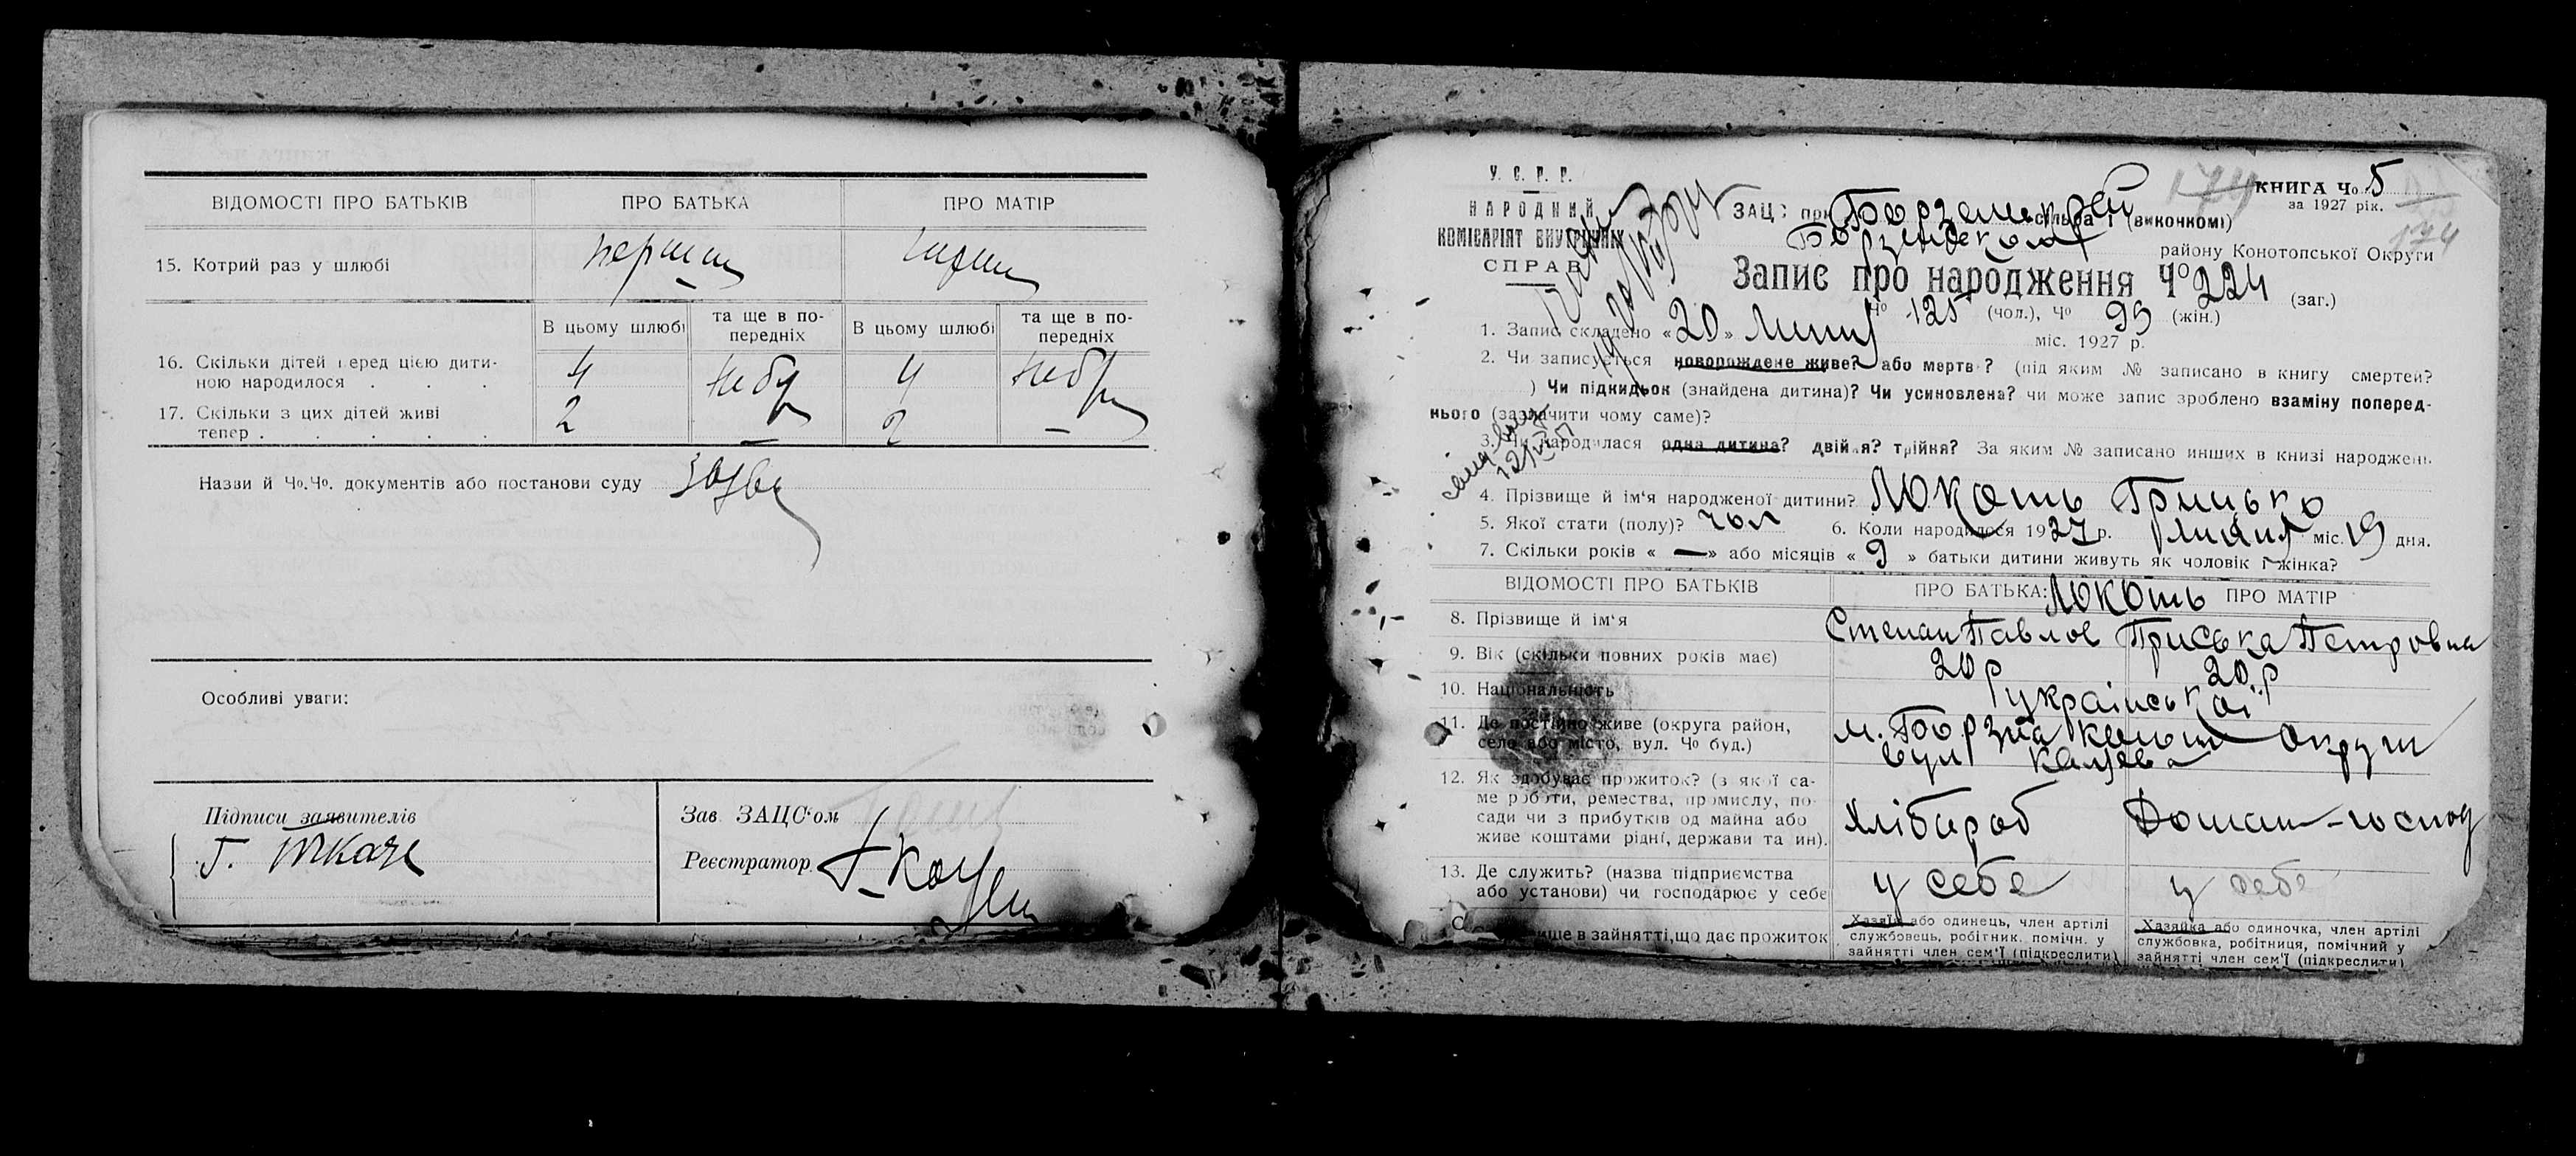 ВІДОМОСТІ ПРО БАТЬКІВ ПРО БАТЬКА ПРО МАТІР
15. Котрий раз у шлюбі перший
В цьому шлюбі та ще в по-передніх В цьому шлюбі та ще в по-передніх
16. Скільки дітей перед цією дити-
ною народилося . . . 4 4
17. Скільки з цих дітей живі
тепер . . . . . 2 — 2 —
Назви й Чо.Чо. документів або постанови суду
Особливі уваги:
Підписи заявителів
Г. Ткач
Зав. ЗАЦС'ом
Реєстратор
У. С. Р. Р.
НАРОДНИЙ
КОМІСАРІЯТ ВНУТРІШНІХ
СПРАВ
КНИГА Чо 5
за 1927 рік.
174
ЗАЦС при сільраді (виконкомі)
району Конотопської Округи
174
Запис про народження Чо 224 (заг.)
Чо 125 (чол.), Чо 99 (жін.)
1. Запис складено «20» липня міс. 1927 р.
2. Чи записується новорождене живе? або мертве? (під яким № записано в книгу смертей?
) Чи підкидьок (знайдена дитина)? Чи усиновлена? чи може запис зроблено взаміну поперед-
нього (зазначити чому саме)?
3. Чи народилася одна дитина? двійня? трійня? За яким № записано инших в книзі народжень
4. Прізвище й ім'я народженої дитини? Локоть Грицько
5. Якої стати (полу)? чол 6. Коли народилося 1927 р. липня міс. 19 дня.
7. Скільки років « — » або місяців « 9 » батьки дитини живуть як чоловік і жінка?
ВІДОМОСТІ ПРО БАТЬКІВ ПРО БАТЬКА: Локоть ПРО МАТІР
8. Прізвище й ім'я Степан Павлов Приська Петровна
9. Вік (скільки повних років має) 20 р 20 р
10. Національність української
11. Де постійно живе (округа район, м. Борзна округи
село або місто, вул. Чо буд.) вул
12. Як здобуває прожиток? (з якої са-
ме роботи, ремества, промислу, по-
сади чи з прибутків од майна або Хлібороб Домаш-господ
живе коштами рідні, держави та ин).
13. Де служить? (назва підприємства
або установи) чи господарює у себе у себе у себе
в зайнятті, що дає прожиток
Хазяїн або одинець, член артілі
службовець, робітник, помічн. у
зайнятті член сем'ї (підкреслити)
Хазяйка або одиночка, член артілі
службовка, робітниця, помічний у
зайнятті член сем'ї (підкреслити)